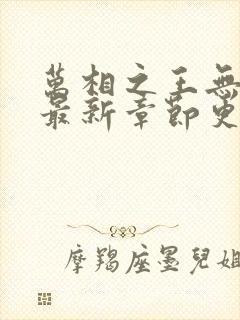 萬相之王無
最新章節更
摩羯座墨兒姐